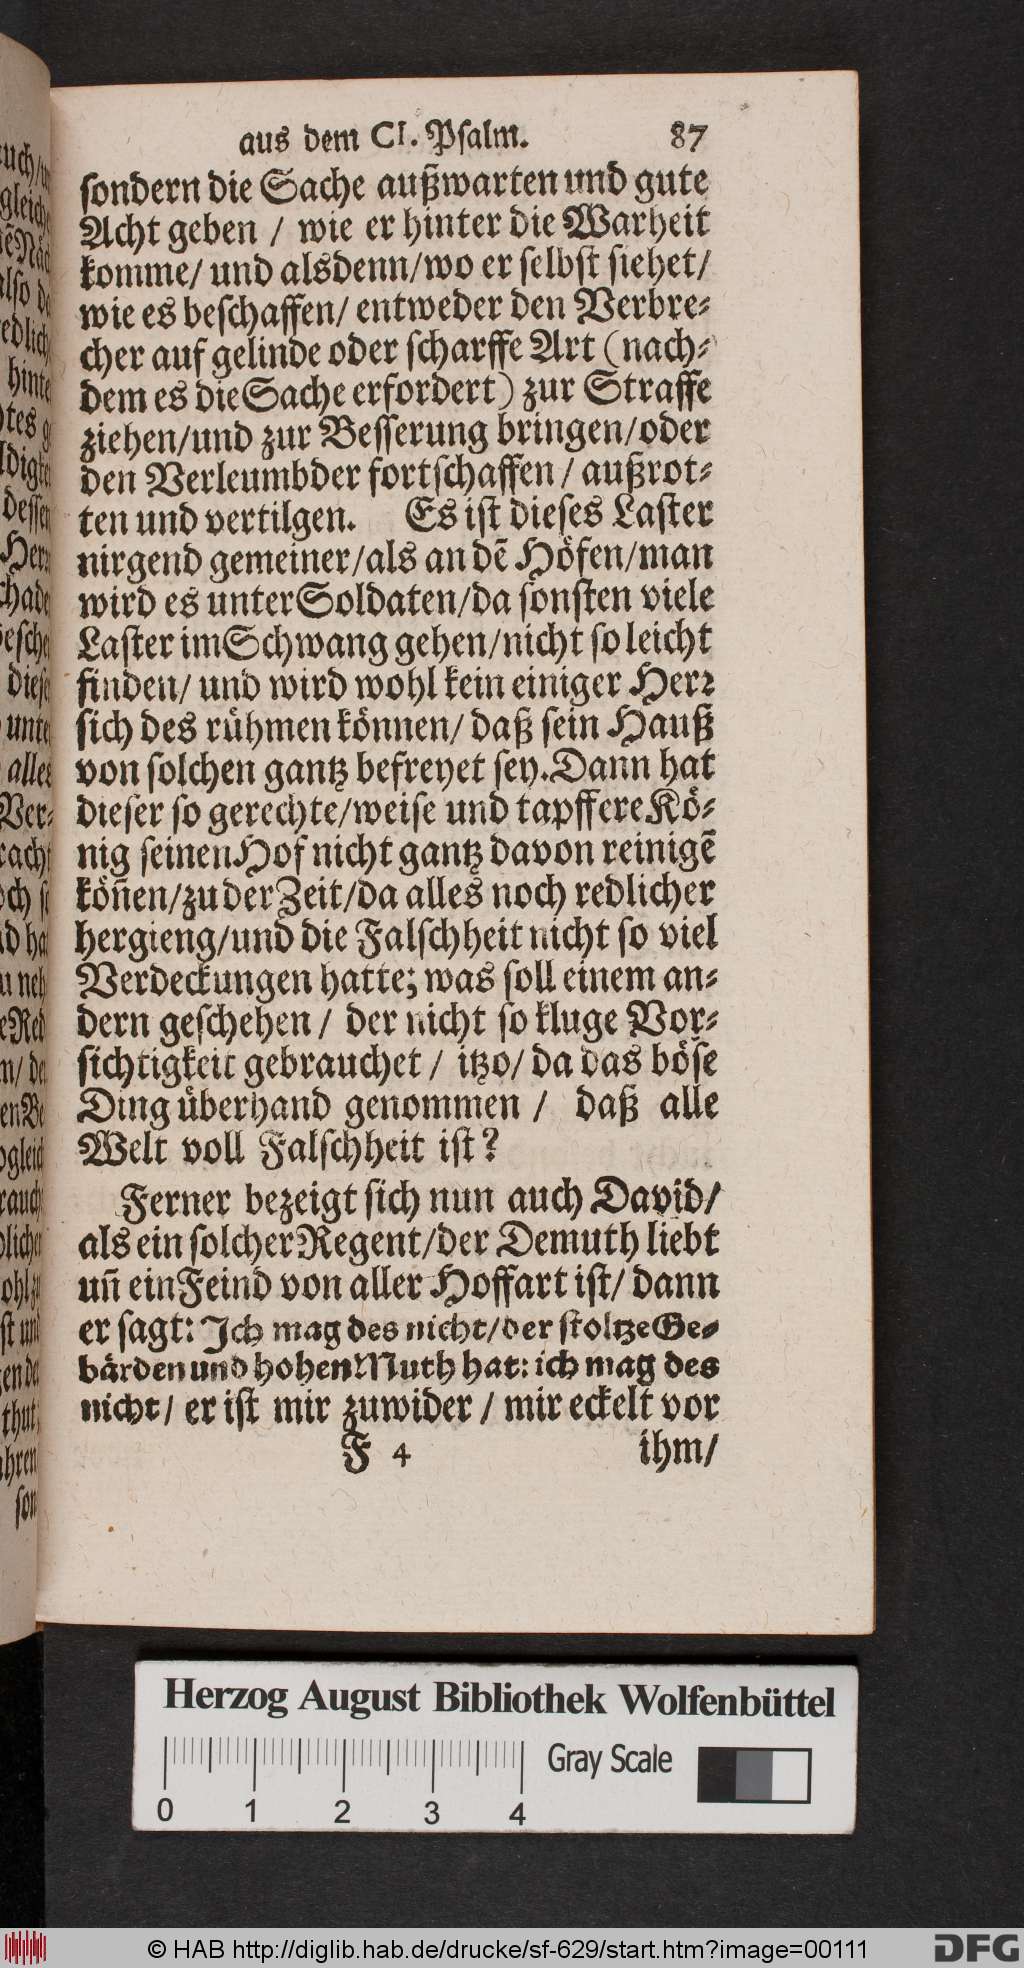 aus dem CI. Psalm. 87
sondern die Sache außwarten und gute
Acht geben / wie er hinter die Warheit
komme/ und alsdenn/wo er selbst siehet/
wie es beschaffen/ entweder den Verbre-
cher auf gelinde oder scharffe Art (nach-
dem es die Sache erfordert) zur Straffe
ziehen/und zur Besserung bringen/oder
den Verleumbder fortschaffen / außrot-
ten und vertilgen. Es ist dieses Laster
nirgend gemeiner/als an dẽ Höfen/man
wird es unter Soldaten/da sonsten viele
Laster im Schwang gehen/nicht so leicht
finden/ und wird wohl kein einiger Herr
sich des rühmen können/ daß sein Hauß
von solchen gantz befreyet sey. Dann hat
dieser so gerechte/weise und tapffere Kö-
nig seinen Hof nicht gantz davon reinigẽ
köñen/zu der Zeit/da alles noch redlicher
hergieng/und die Falschheit nicht so viel
Verdeckungen hatte; was soll einem an-
dern geschehen / der nicht so kluge Vor-
sichtigkeit gebrauchet / itzo/ da das böse
Ding überhand genommen / daß alle
Welt voll Falschheit ist?
Ferner bezeigt sich nun auch David/
als ein solcher Regent/der Demuth liebt
uñ ein Feind von aller Hoffart ist/ dann
er sagt: Ich mag des nicht/der stoltze Ge-
bärden und hohen Muth hat: ich mag des
nicht/ er ist mir zuwider / mir eckelt vor
F 4 ihm/
Herzog August Bibliothek Wolfenbüttel
Gray Scale
0 1 2 3 4
© HAB http://diglib.hab.de/drucke/sf-629/start.htm?image=00111
DFG